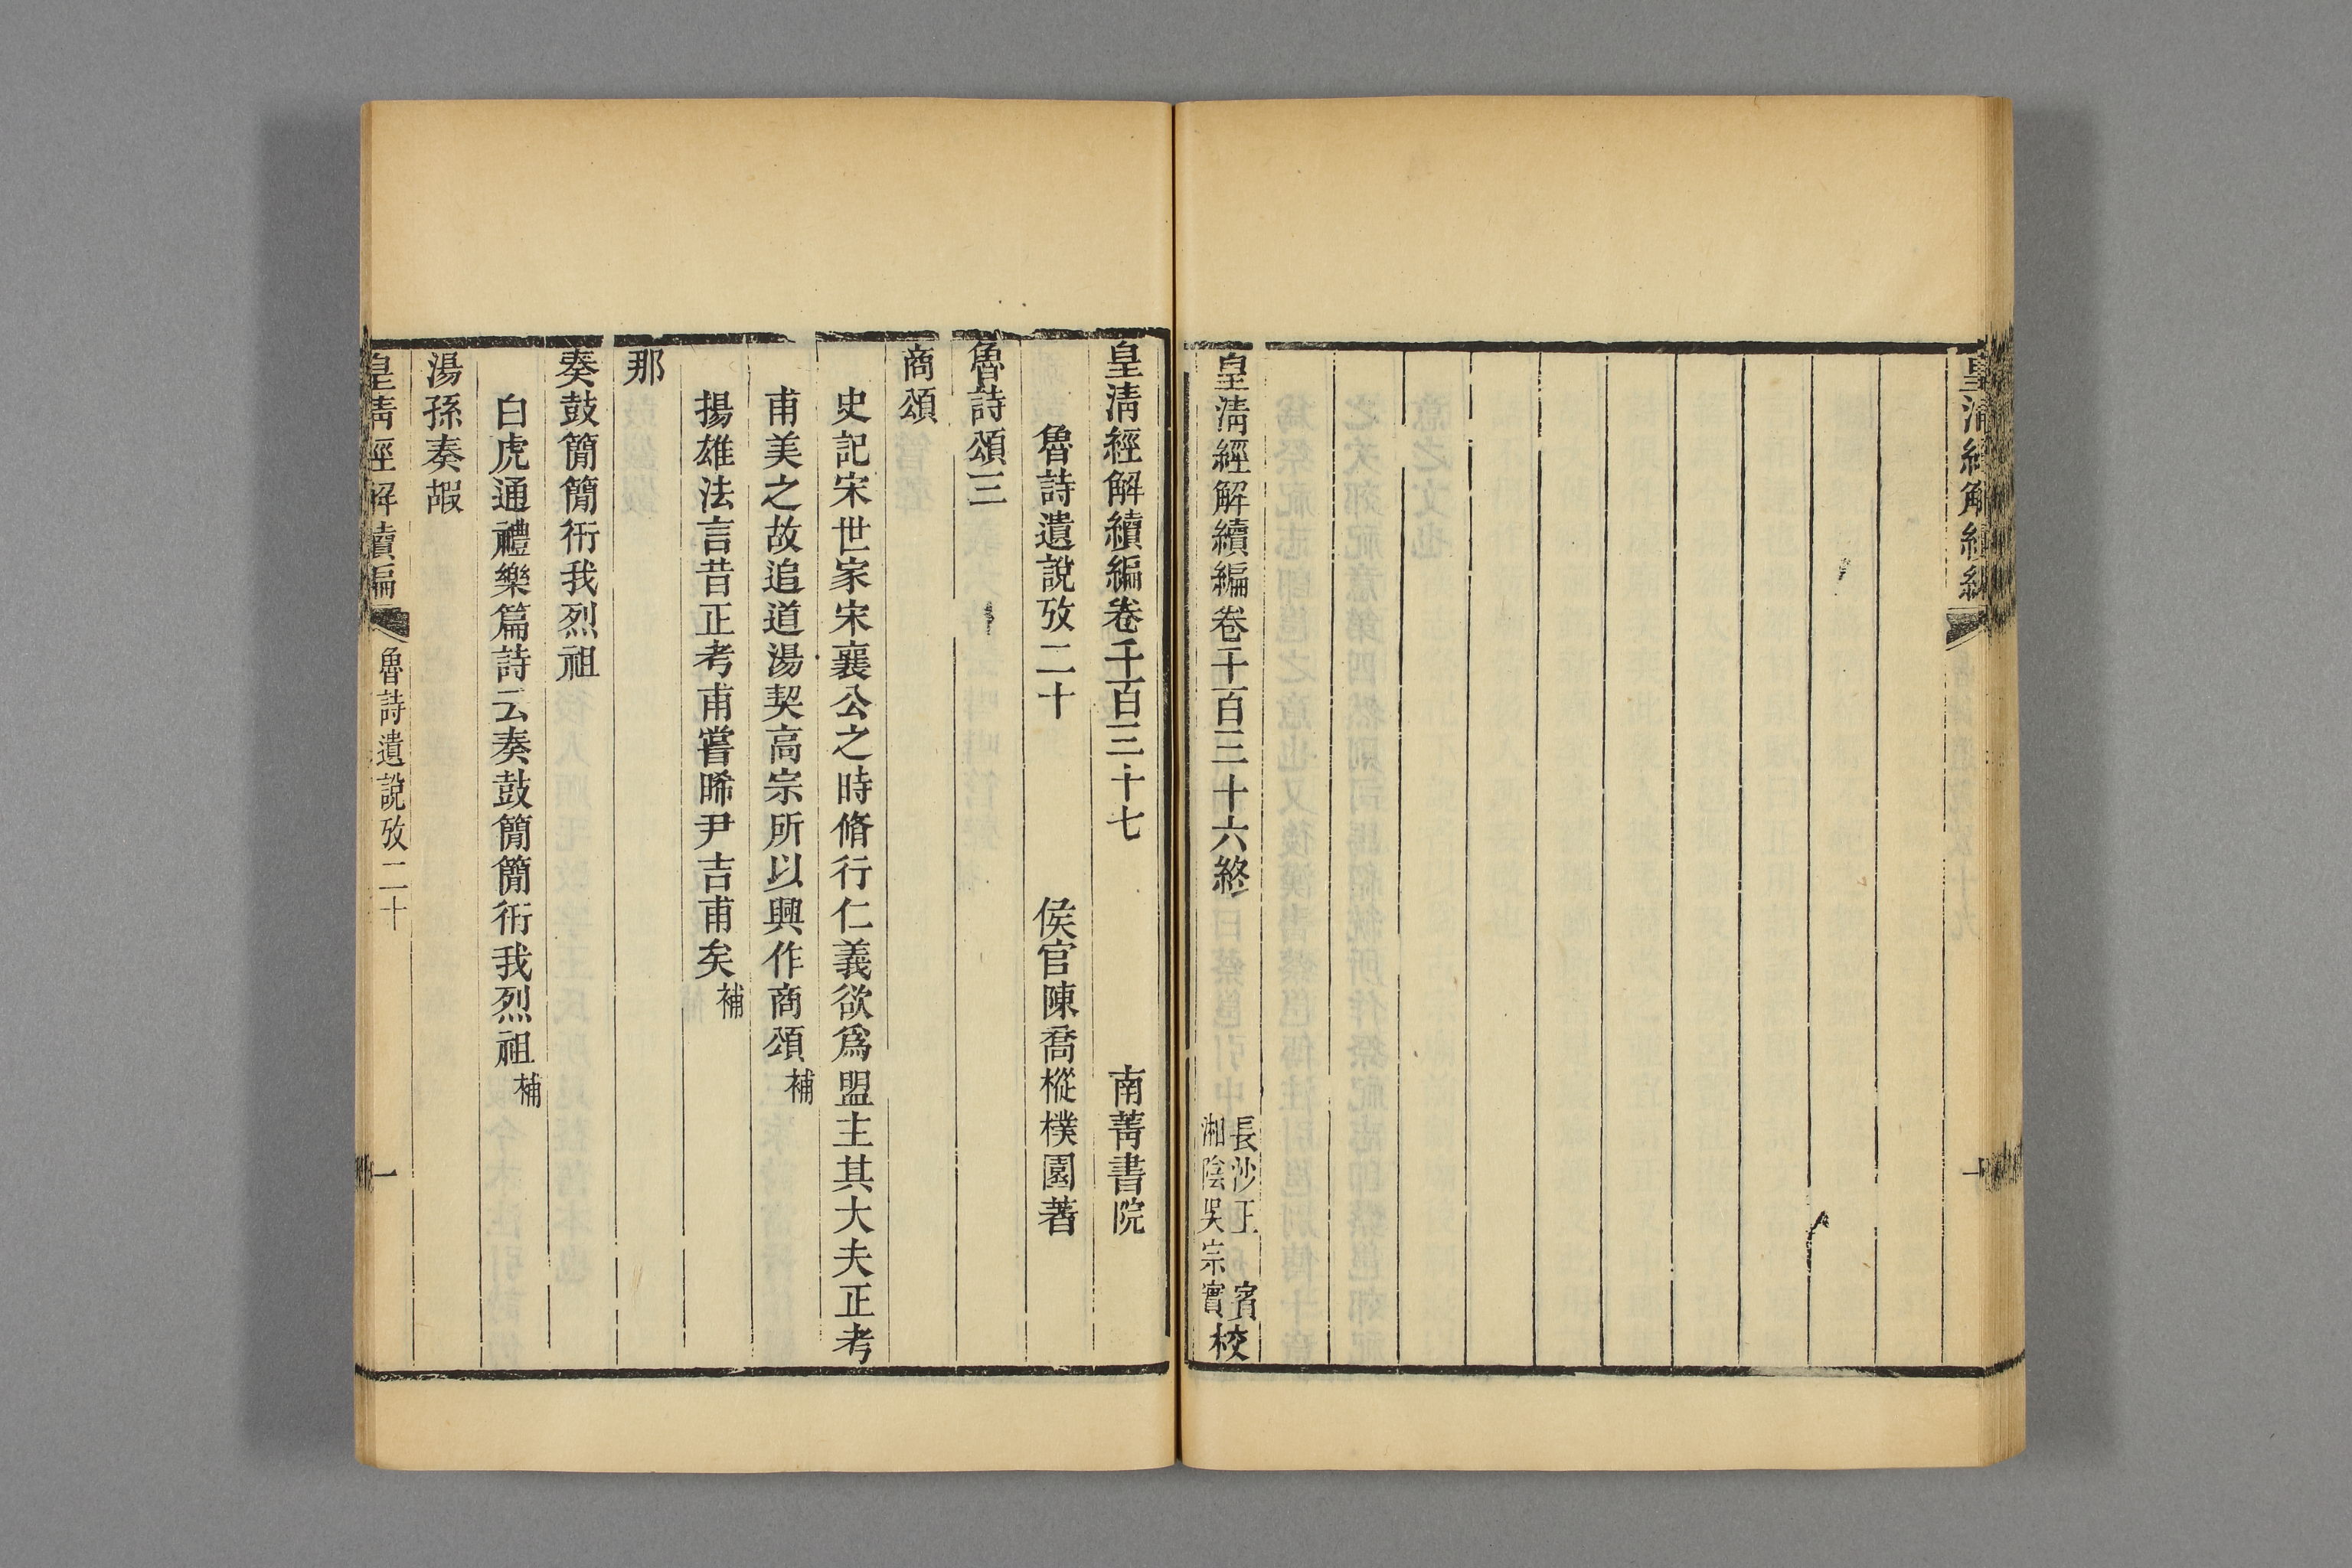 皇清經解續編
皇清經解續編卷千百三十六終
長沙王 賓
湘陰吳宗實校
皇清經解續編卷千百三十七 南菁書院
魯詩遺說攷二十 侯官陳喬樅樸園著
魯詩頌三
商頌
史記宋世家宋襄公之時脩行仁義欲爲盟主其大夫正考
甫美之故追道湯契高宗所以興作商頌補
揚雄法言昔正考甫嘗睎尹吉甫矣補
那
奏鼓簡簡衎我烈祖
白虎通禮樂篇詩云奏鼓簡簡衎我烈祖補
湯孫奏嘏
皇清經解續編 魯詩遺說攷二十 一